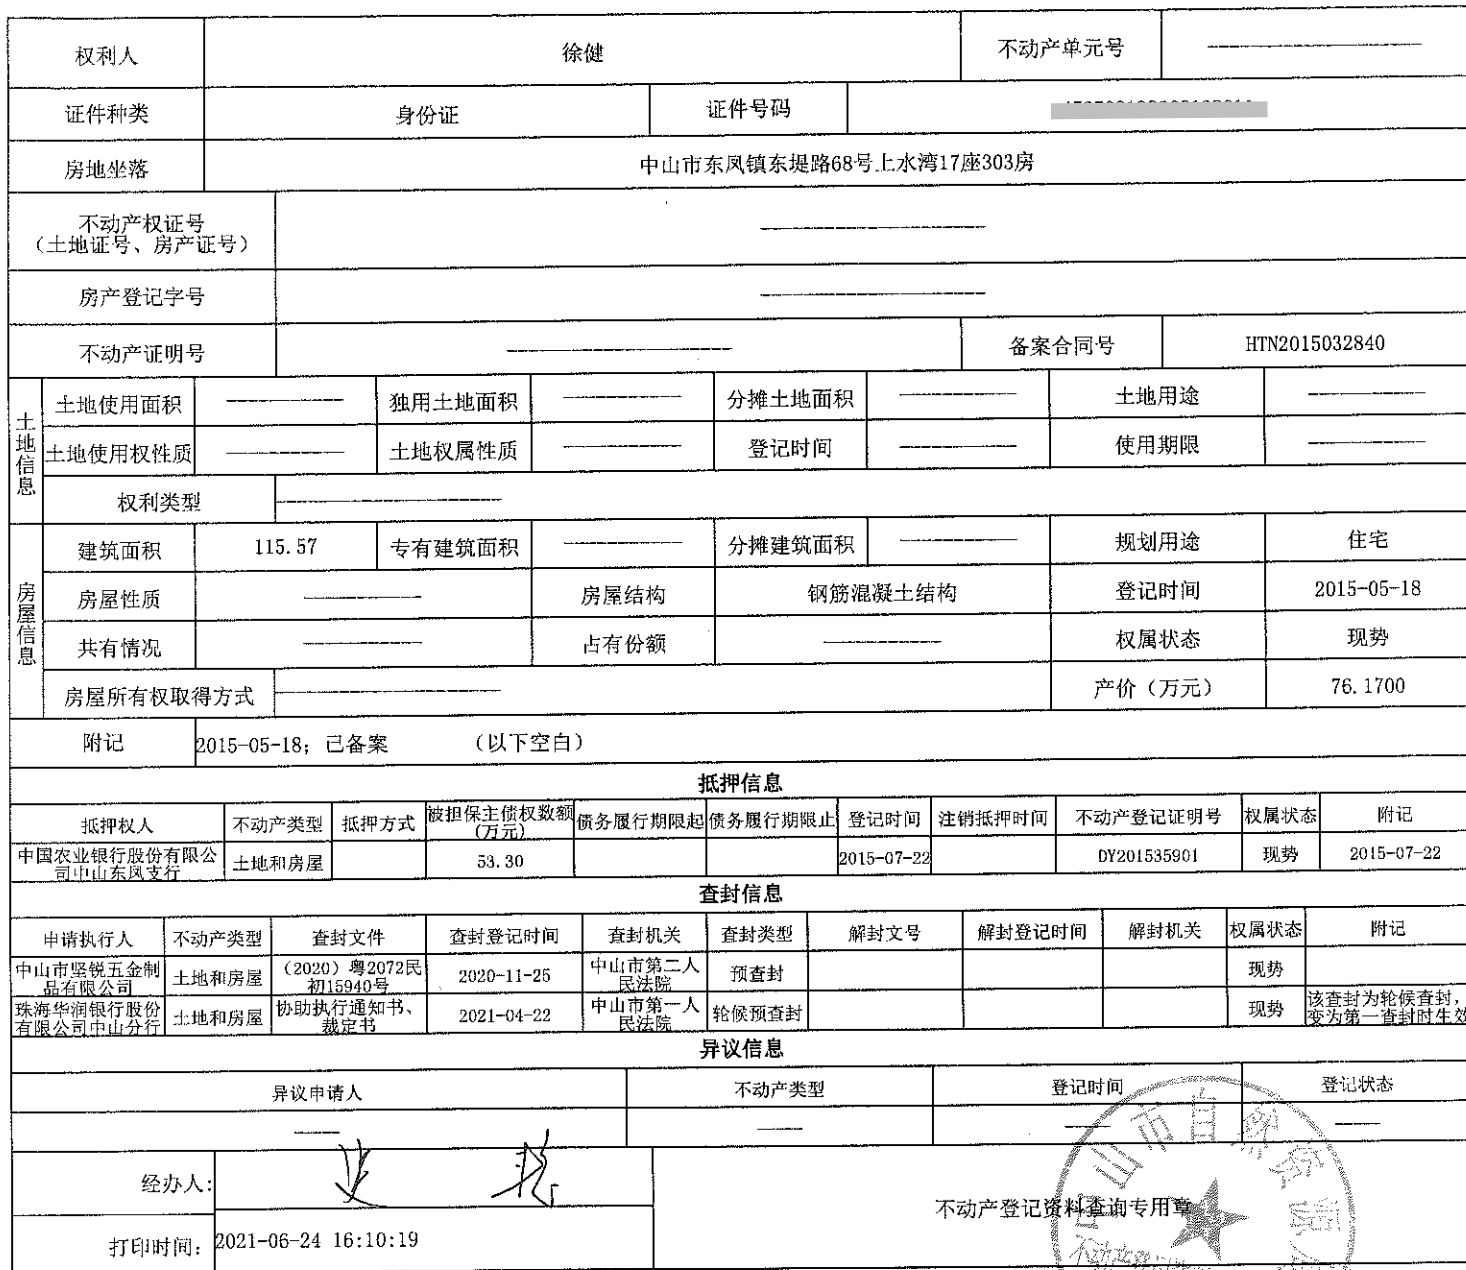 权利人 徐健 不动产单元号 ————
证件种类 身份证 证件号码
房地坐落 中山市东凤镇东堤路68号上水湾17座303房
不动产权证号
（土地证号、房产证号） ————
房产登记字号 ————
不动产证明号 ———— 备案合同号 HTN2015032840
土地信息
土地使用面积 ———— 独用土地面积 ———— 分摊土地面积 ———— 土地用途 ————
土地使用权性质 ———— 土地权属性质 ———— 登记时间 ———— 使用期限 ————
权利类型 ————
房屋信息
建筑面积 115.57 专有建筑面积 ———— 分摊建筑面积 ———— 规划用途 住宅
房屋性质 ———— 房屋结构 钢筋混凝土结构 登记时间 2015-05-18
共有情况 ———— 占有份额 ———— 权属状态 现势
房屋所有权取得方式 ———— 产价（万元） 76.1700
附记 2015-05-18; 已备案 （以下空白）
抵押信息
抵押权人 不动产类型 抵押方式 被担保主债权数额(万元) 债务履行期限起 债务履行期限止 登记时间 注销抵押时间 不动产登记证明号 权属状态 附记
中国农业银行股份有限公司中山东凤支行 土地和房屋 53.30 2015-07-22 DY201535901 现势 2015-07-22
查封信息
申请执行人 不动产类型 查封文件 查封登记时间 查封机关 查封类型 解封文号 解封登记时间 解封机关 权属状态 附记
中山市坚锐五金制品有限公司 土地和房屋 （2020）粤2072民初15940号 2020-11-25 中山市第二人民法院 预查封 现势
珠海华润银行股份有限公司中山分行 土地和房屋 协助执行通知书、裁定书 2021-04-22 中山市第一人民法院 轮候预查封 现势 该查封为轮候查封，变为第一查封时生效
异议信息
异议申请人 不动产类型 登记时间 登记状态
—— —— —— ——
经办人:
不动产登记资料查询专用章
打印时间: 2021-06-24 16:10:19
中山市自然资源